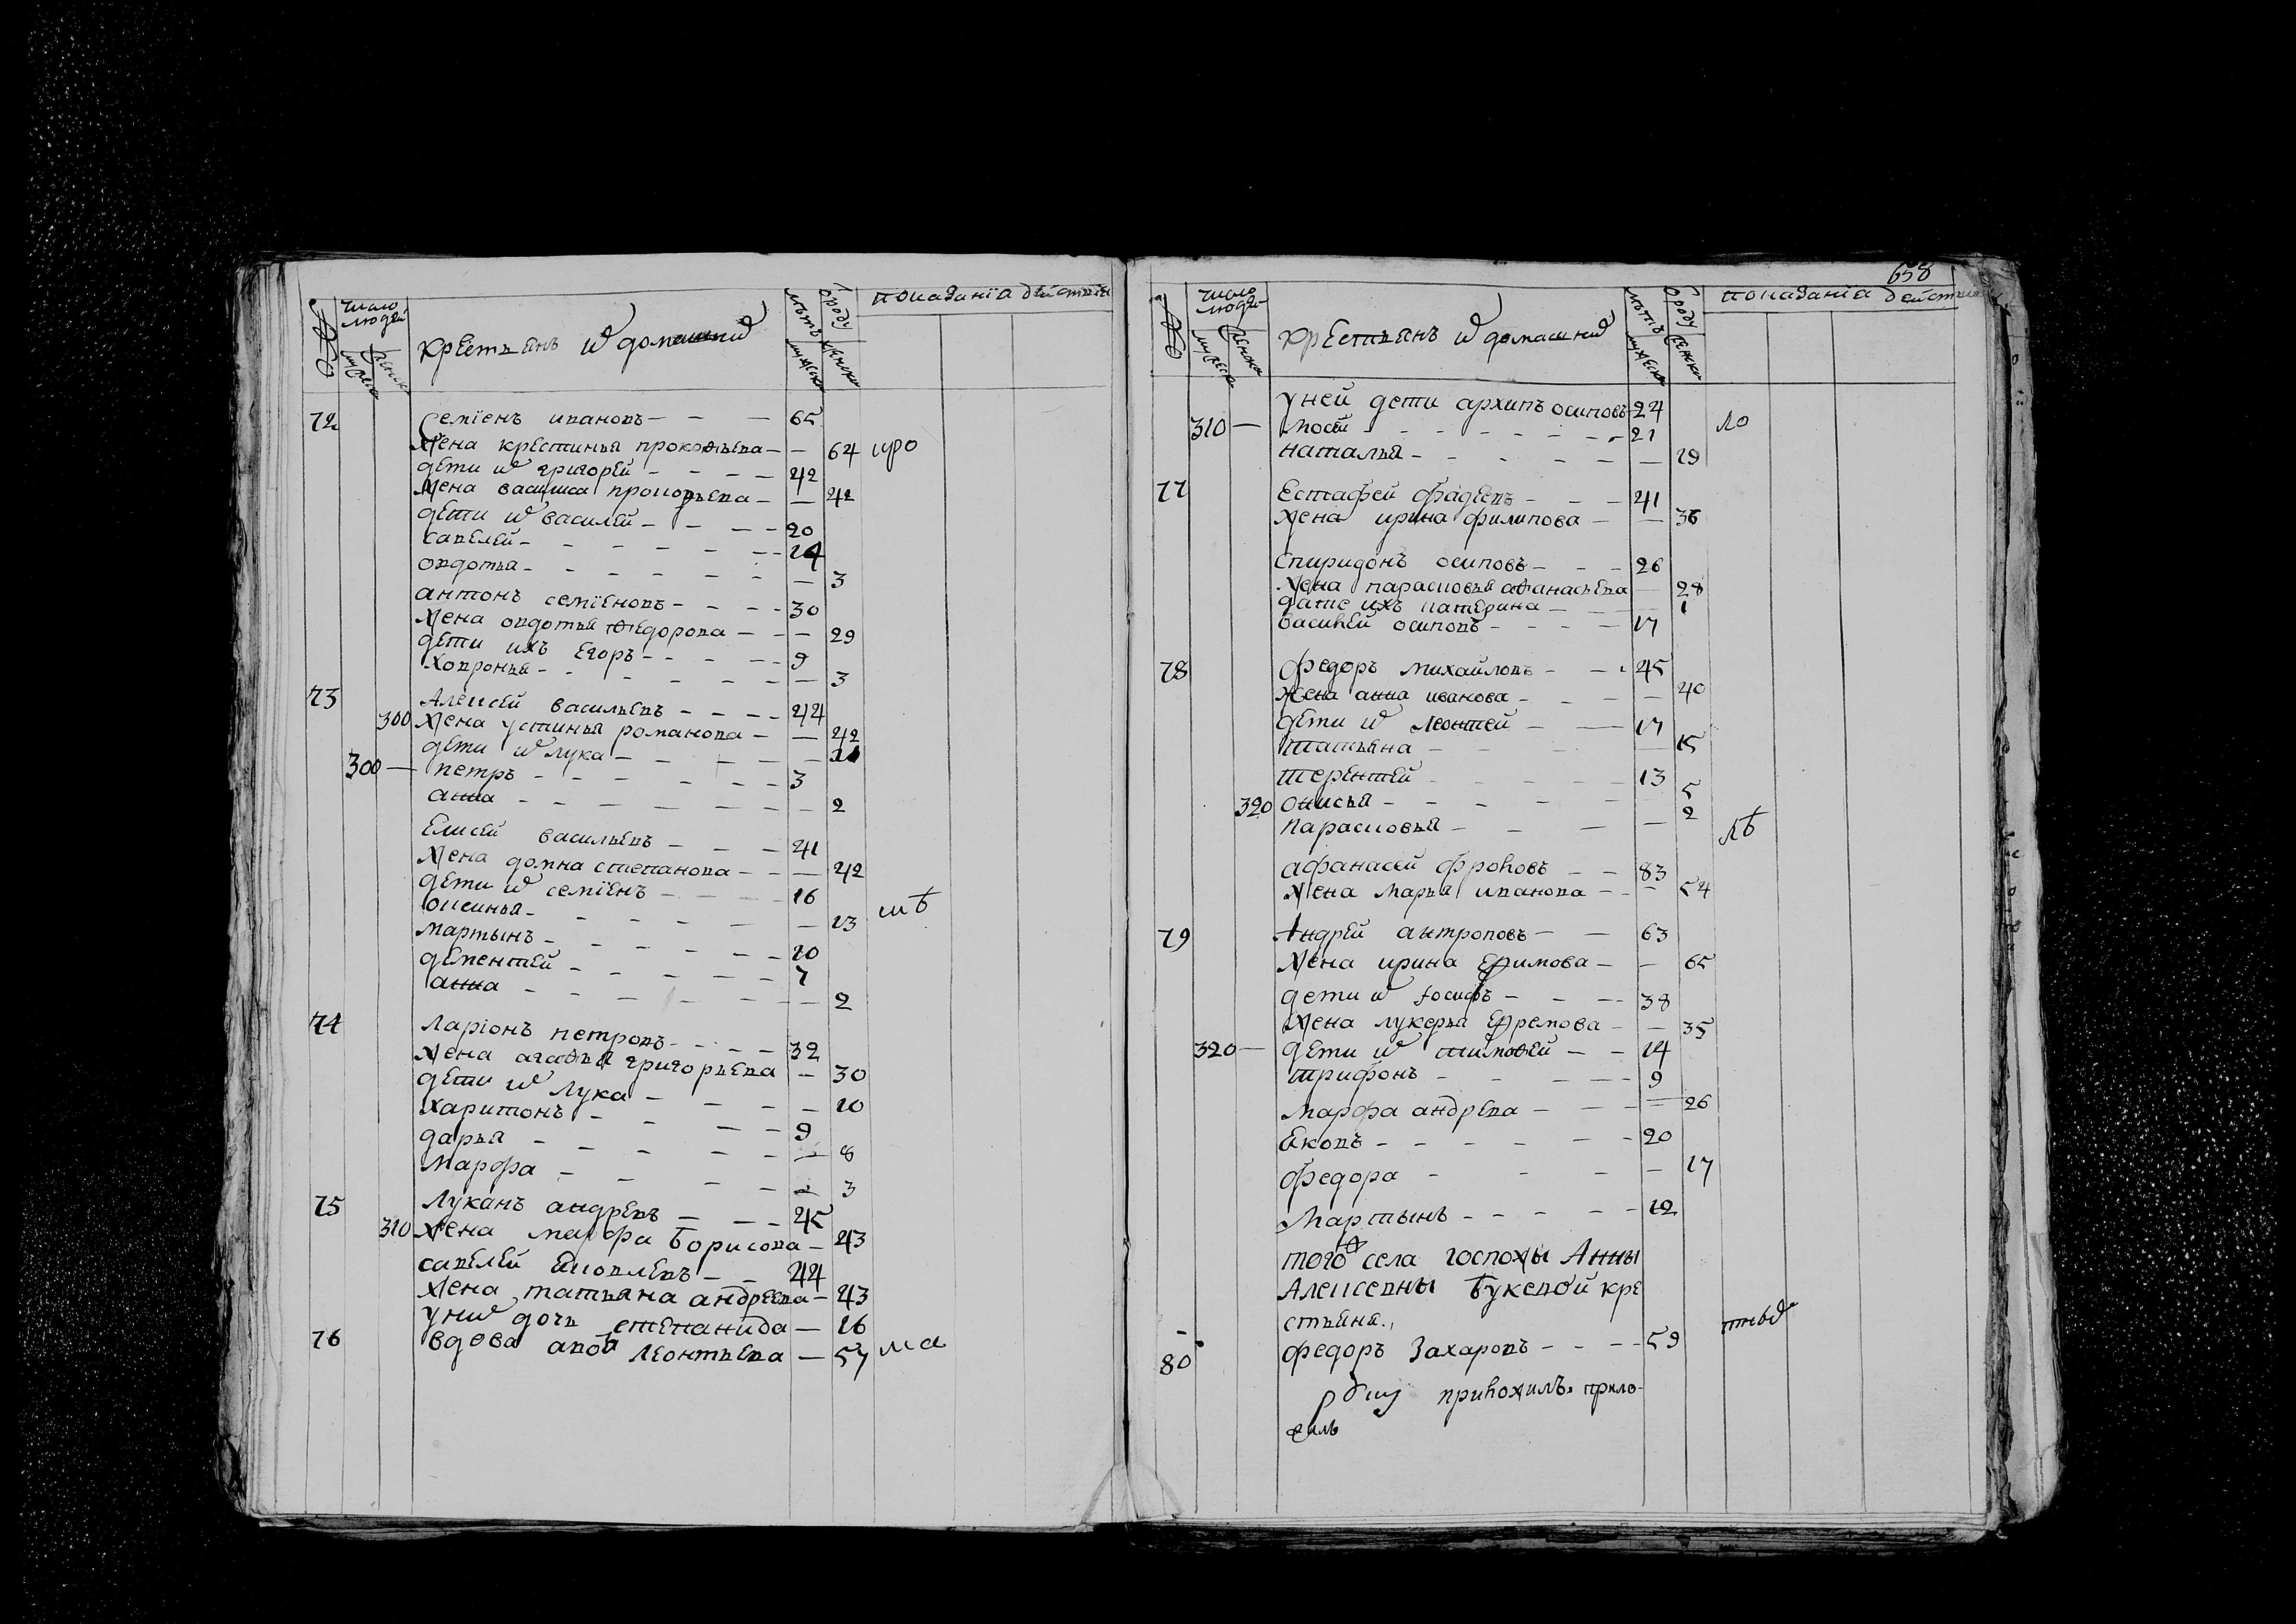 число людей
мужеска
женска
крестьянъ и домашниⷯ
лѣтъ
ѿ роду
мужеска
женска
показанїа действїа
72 Семїенъ ивановъ — 65
жена крестинья прокофьева — 64
дети иⷯ григорей — 42
жена василиса прокофьева — 42
дети иⷯ василей — 20
савелей — 14
овдотья — 3
антонъ семїеновъ — 30
жена овдотья федорова — 29
дети ихъ Егоръ — 9
ховронья — 3
73 Алексей васильевъ — 44
300 жена устинья романова — 42
дети иⷯ лука —
300 — петръ — 3
анна — 2
Елисей васильевъ — 41
жена домна степанова — 42
дети иⷯ семїенъ — 16
оксинья — 13
мартынъ — 10
дементей — 7
анна — 2
74 Ларіонъ петровъ — 32
жена агафья григорьева — 30
дети иⷯ Лука — 10
харитонъ — 9
дарья — 8
марфа — 3
75 Луканъ андревъ — 45
310 жена марфа борисова — 43
савелей Яковлевъ — 44
жена татьяна андреева — 43
у ниⷯ дочь степанида — 16
76 вдова Леонтьева — 57
658
число людей
мужеска
женска
крестьянъ и домашниⷯ
лѣтъ
ѿ роду
мужеска
женска
показанїа действїа
у ней дети архипъ осиповъ — 24
310 — мосей — 21
наталья — 19
77 Естафей фадевъ — 41
жена ирина филипова — 36
спиридонъ осиповъ — 26
жена парасковья афанасьева — 28
ихъ катерина — 1
василей осиповъ — 17
78 федоръ михайловъ — 45
жена анна иванова — 40
дети иⷯ леонтей — 17
татьяна — 15
терентей — 13
320 онисья — 5
парасковья — 2
афанасей фроловъ — 83
жена марья иванова — 54
79 Андрей антроповъ — 63
жена ирина Ефимова — 65
дети иⷯ Іосифъ — 38
жена лукерья Ефремова — 35
320 — дети иⷯ тимофей — 14
трифонъ — 9
марфа андрева — 26
Яковъ — 20
федора — 17
мартынъ — 12
того села госпожы Анны
Алексевны Букевой кре
стьяня.
80 федоръ Захаровъ — 59